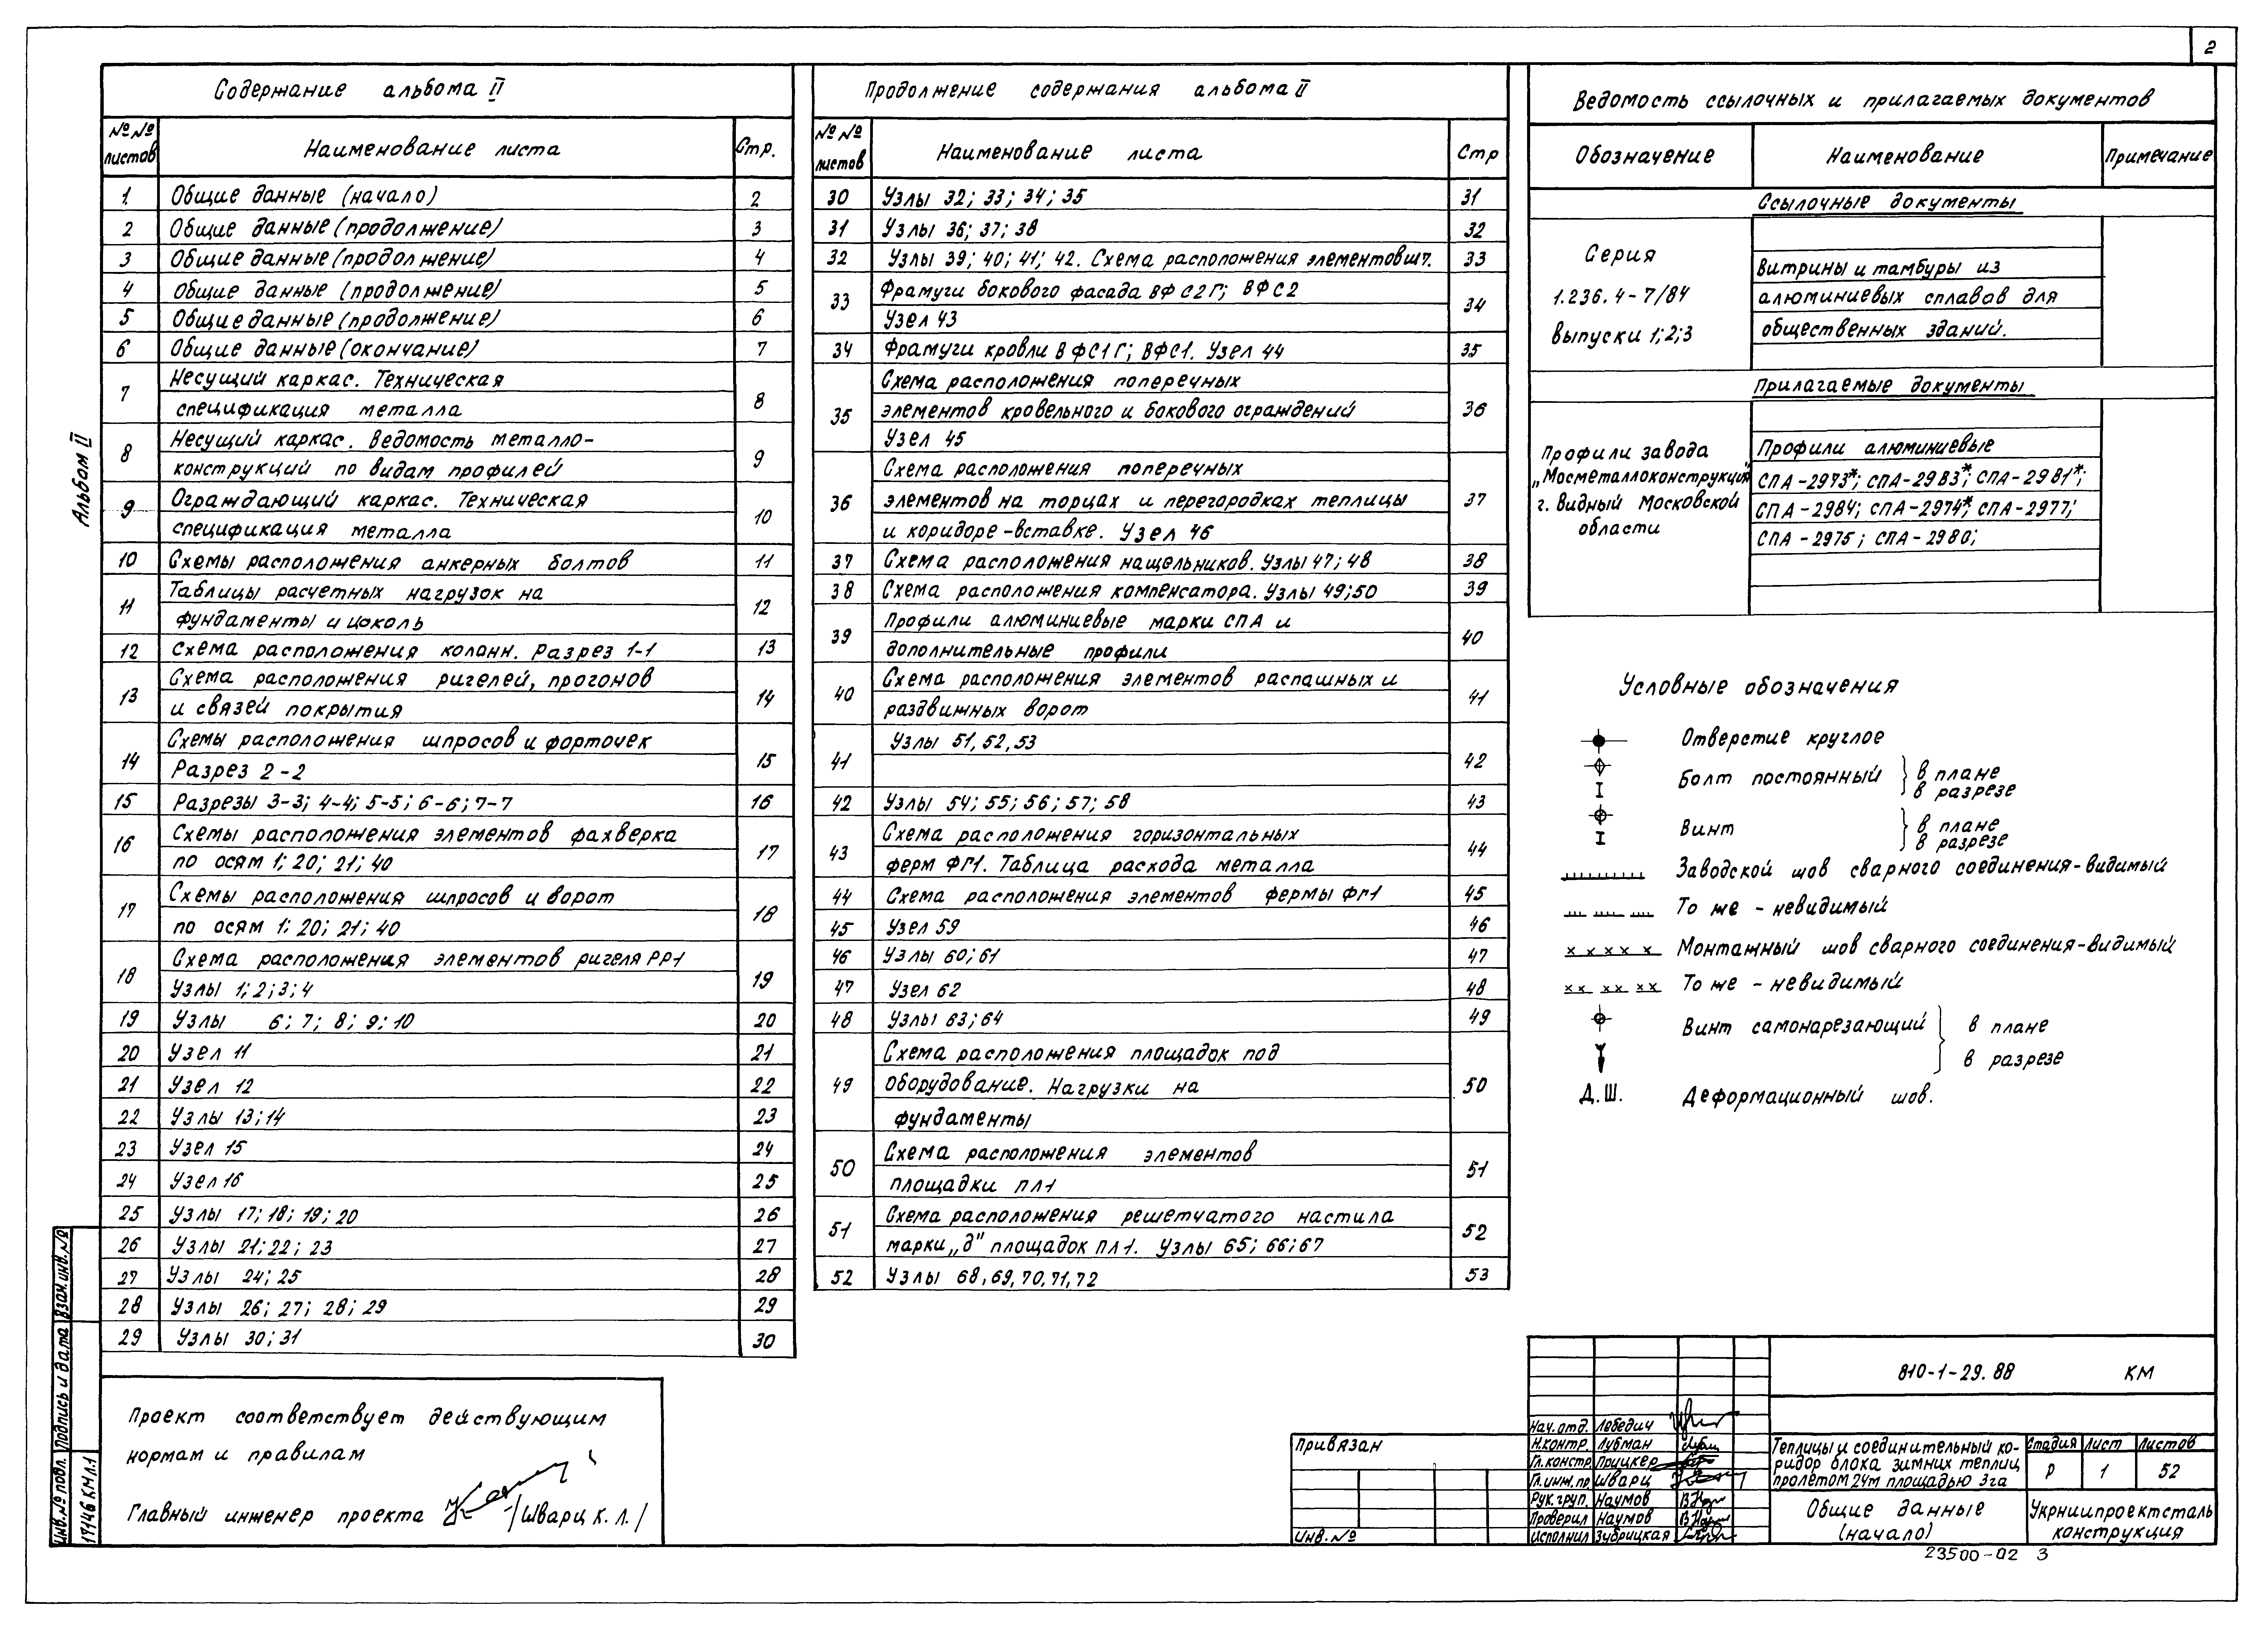 2
Альбом II
Содержание альбома II
№№ листов Наименование листа Стр.
1 Общие данные (начало) 2
2 Общие данные (продолжение) 3
3 Общие данные (продолжение) 4
4 Общие данные (продолжение) 5
5 Общие данные (продолжение) 6
6 Общие данные (окончание) 7
7 Несущий каркас. Техническая
спецификация металла 8
8 Несущий каркас. Ведомость металло-
конструкций по видам профилей 9
9 Ограждающий каркас. Техническая
спецификация металла 10
10 Схемы расположения анкерных болтов 11
11 Таблицы расчетных нагрузок на
фундаменты и цоколь 12
12 Схема расположения колонн. Разрез 1-1 13
13 Схема расположения ригелей, прогонов
и связей покрытия 14
14 Схемы расположения шпросов и форточек
Разрез 2-2 15
15 Разрезы 3-3; 4-4; 5-5; 6-6; 7-7 16
16 Схемы расположения элементов фахверка
по осям 1; 20; 21; 40 17
17 Схемы расположения шпросов и ворот
по осям 1; 20; 21; 40 18
18 Схема расположения элементов ригеля РР1
Узлы 1; 2; 3; 4 19
19 Узлы 6; 7; 8; 9; 10 20
20 Узел 11 21
21 Узел 12 22
22 Узлы 13; 14 23
23 Узел 15 24
24 Узел 16 25
25 Узлы 17; 18; 19; 20 26
26 Узлы 21; 22; 23 27
27 Узлы 24; 25 28
28 Узлы 26; 27; 28; 29 29
29 Узлы 30; 31 30
Продолжение содержания альбома II
№№ листов Наименование листа Стр
30 Узлы 32; 33; 34; 35 31
31 Узлы 36; 37; 38 32
32 Узлы 39; 40; 41; 42. Схема расположения элементов шт. 33
33 Фрамуги бокового фасада ВФС2Г; ВФС2
Узел 43 34
34 Фрамуги кровли ВФС1Г; ВФС1. Узел 44 35
35 Схема расположения поперечных
элементов кровельного и бокового ограждений
Узел 45 36
36 Схема расположения поперечных
элементов на торцах и перегородках теплицы
и коридоре-вставке. Узел 46 37
37 Схема расположения нащельников. Узлы 47; 48 38
38 Схема расположения компенсатора. Узлы 49; 50 39
39 Профили алюминиевые марки СПА и
дополнительные профили 40
40 Схема расположения элементов распашных и
раздвижных ворот 41
41 Узлы 51, 52, 53 42
42 Узлы 54; 55; 56; 57; 58 43
43 Схема расположения горизонтальных
ферм ФГ1. Таблица расхода металла 44
44 Схема расположения элементов фермы ФГ1 45
45 Узел 59 46
46 Узлы 60; 61 47
47 Узел 62 48
48 Узлы 63; 64 49
49 Схема расположения площадок под
оборудование. Нагрузки на
фундаменты 50
50 Схема расположения элементов
площадки ПЛ1 51
51 Схема расположения решетчатого настила
марки „д" площадок ПЛ1. Узлы 65; 66; 67 52
52 Узлы 68, 69, 70, 71, 72 53
Ведомость ссылочных и прилагаемых документов
Обозначение Наименование Примечание
Ссылочные документы
Серия
1.236.4-7/84
выпуски 1; 2; 3
Витрины и тамбуры из
алюминиевых сплавов для
общественных зданий.
Прилагаемые документы
Профили завода
„Мосметаллоконструкция"
г. Видный Московской
области
Профили алюминиевые
СПА-2973*; СПА-2983*; СПА-2981*;
СПА-2984; СПА-2974*; СПА-2977;
СПА-2975; СПА-2980;
Условные обозначения
Отверстие круглое
Болт постоянный в плане
в разрезе
Винт в плане
в разрезе
Заводской шов сварного соединения-видимый
То же - невидимый
Монтажный шов сварного соединения-видимый
То же - невидимый
Винт самонарезающий в плане
в разрезе
Д.Ш. Деформационный шов.
Проект соответствует действующим
нормам и правилам
Главный инженер проекта /Шварц К.Л./
Инв.№ подл. Подпись и дата Взам.инв.№
17146 КМ л.1
Привязан
Инв.№
Нач.отд. Лебедич
Н.контр. Лубман
Гл.констр. Прицкер
Гл.инж.пр. Шварц
Рук.груп. Наумов
Проверил Наумов
Исполнил Зубрицкая
810-1-29.88 КМ
Теплицы и соединительный ко-
ридор блока зимних теплиц
пролетом 24м площадью 3га
Стадия Лист Листов
Р 1 52
Общие данные
(начало)
Укрниипроектсталь
конструкция
23500-02 3